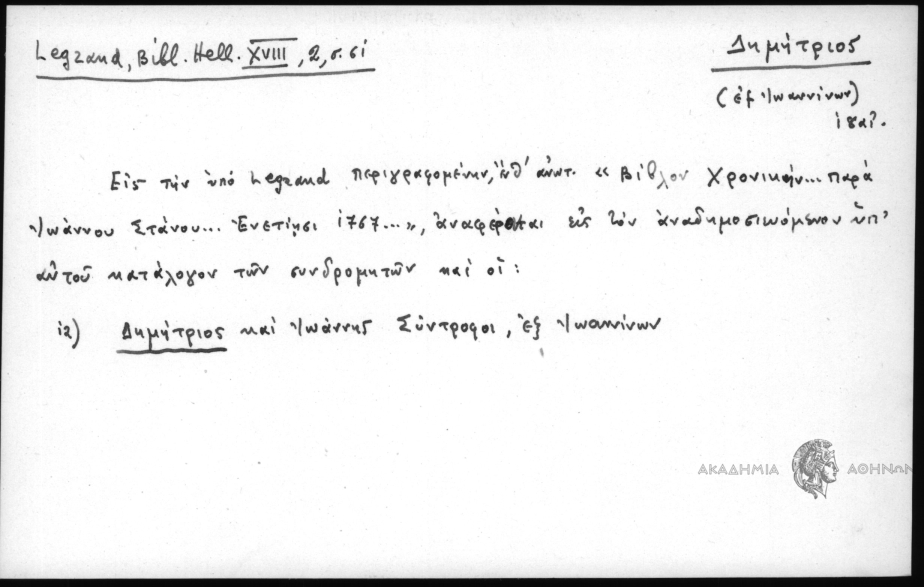 Legrand, Bibl. Hell. XVIII, 2, σ. 51
Δημήτριος
(ἐξ Ἰωαννίνων)
Εἰς τὴν ὑπὸ Legrand περιγραφομένην, ἔνθ' ἀνωτ. « Βίβλον Χρονικὴν... παρὰ
Ἰωάννου Στάνου... Ἐνετίῃσι 1767...», ἀναφέρονται εἰς τὸν ἀναδημοσιευόμενον ὑπ'
αὐτοῦ κατάλογον τῶν συνδρομητῶν καὶ οἱ:
12) Δημήτριος καὶ Ἰωάννης Σύντροφοι, ἐξ Ἰωαννίνων
ΑΚΑΔΗΜΙΑ ΑΘΗΝΩΝ